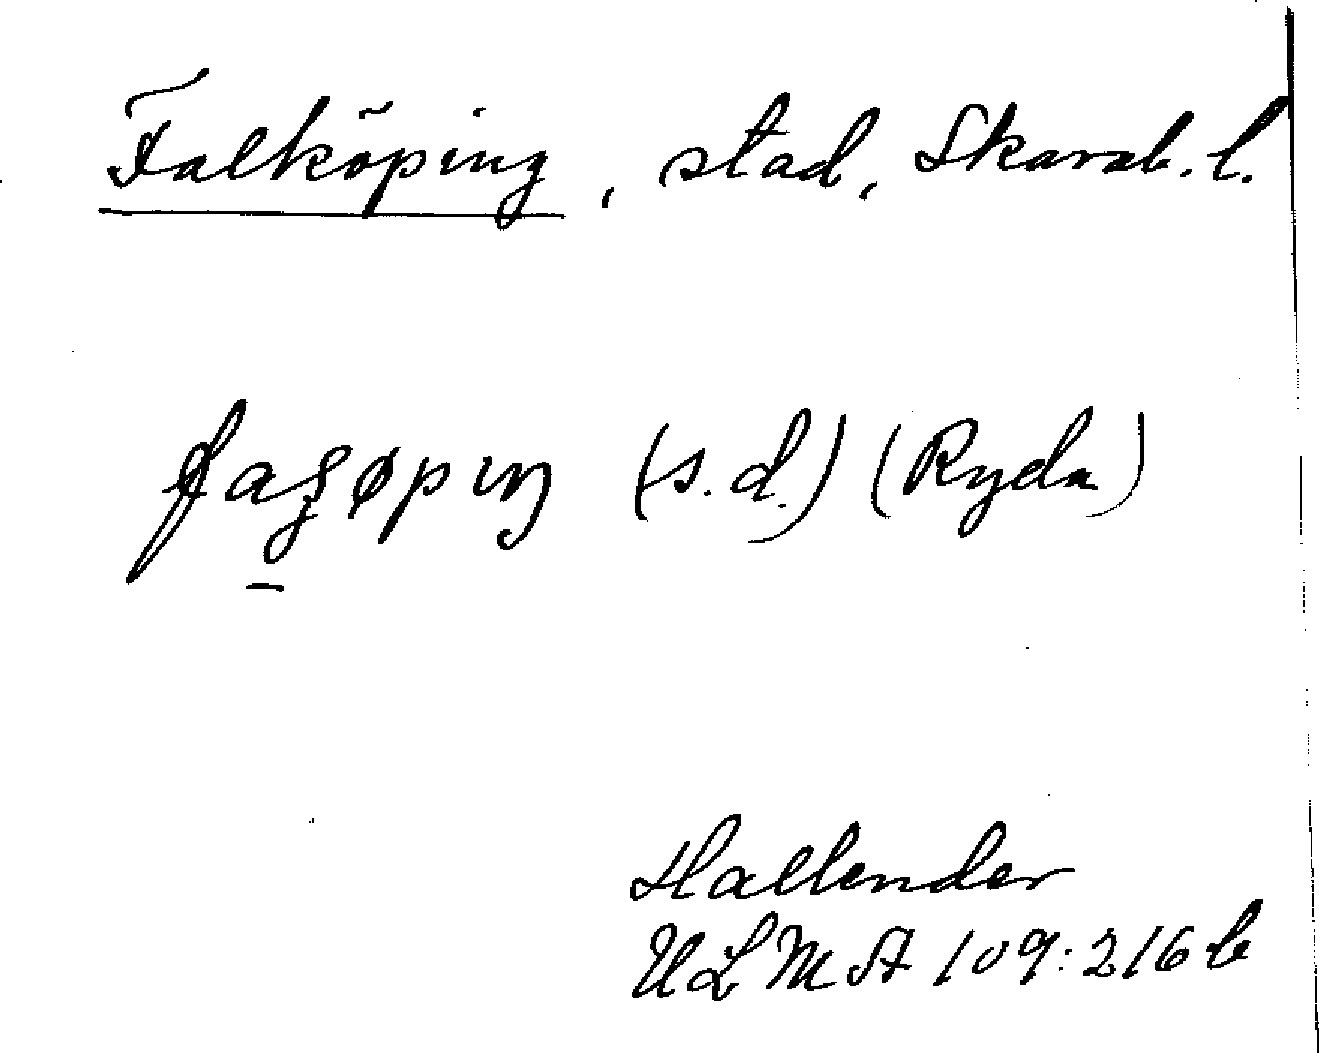 Falköping, stad, Skarab. l.
faʒøpıŋ (s. d.) (Ryda)
Hallender
ULMA 109:216 b